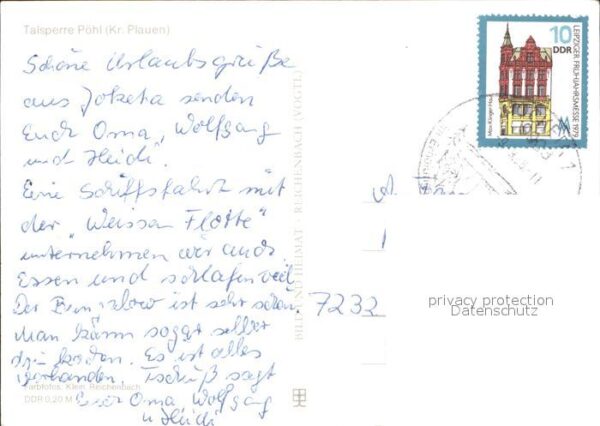 Talsperre Pöhl (Kr. Plauen)
Schöne Urlaubsgrüße
aus Jocketa senden
Euch Oma, Wolfgang
und Heidi.
Eine Schiffsfahrt mit
der „Weissen Flotte"
unternehmen wir auch.
Essen und schlafen viel.
Der Bungalow ist sehr schön,
Man kann sogar selber
drin kochen. Es ist alles
vorhanden. Tschüß sagt
Euer Oma, Wolfgang
u. Heidi
Farbfotos: Klein, Reichenbach
DDR 0,20 M
BILD UND HEIMAT · REICHENBACH (VOGTL)
7232
10
DDR
LEIPZIGER FRÜHJAHRSMESSE 1973
MM
privacy protection
Datenschutz